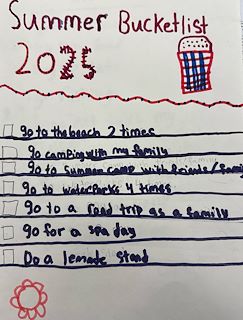 Summer Bucketlist
2025
go to the beach 2 times
go camping with my family
go to summer camp with friends/family
go to waterparks 4 times
go to a road trip as a family
go for a spa day
Do a lemade stand